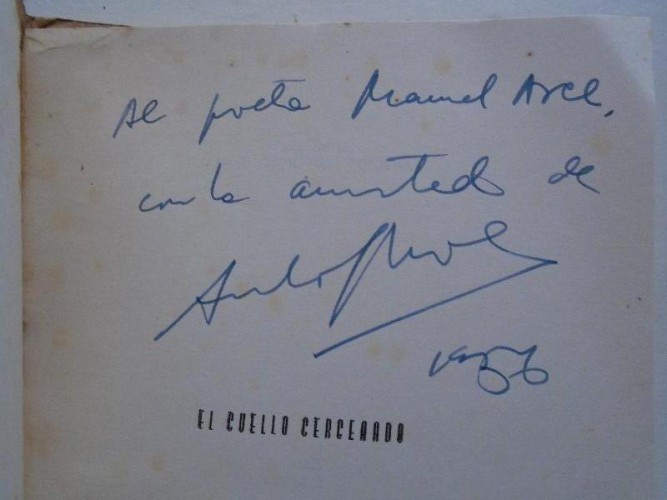 Al poeta Manuel Arce,
con la amistad de
1956
EL CUELLO CERCENADO